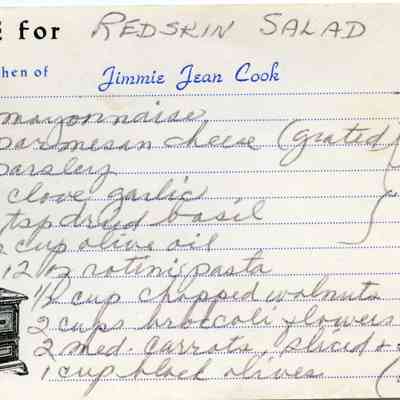 for REDSKIN SALAD
hen of Jimmie Jean Cook
mayonnaise
parmesan cheese (grated)
parsley
clove garlic
tsp dryd basil
cup olive oil
12 oz rotini pasta
1/2 cup chopped walnuts
2 cups broccoli flowers
2 med. carrots, sliced
1 cup black olives (